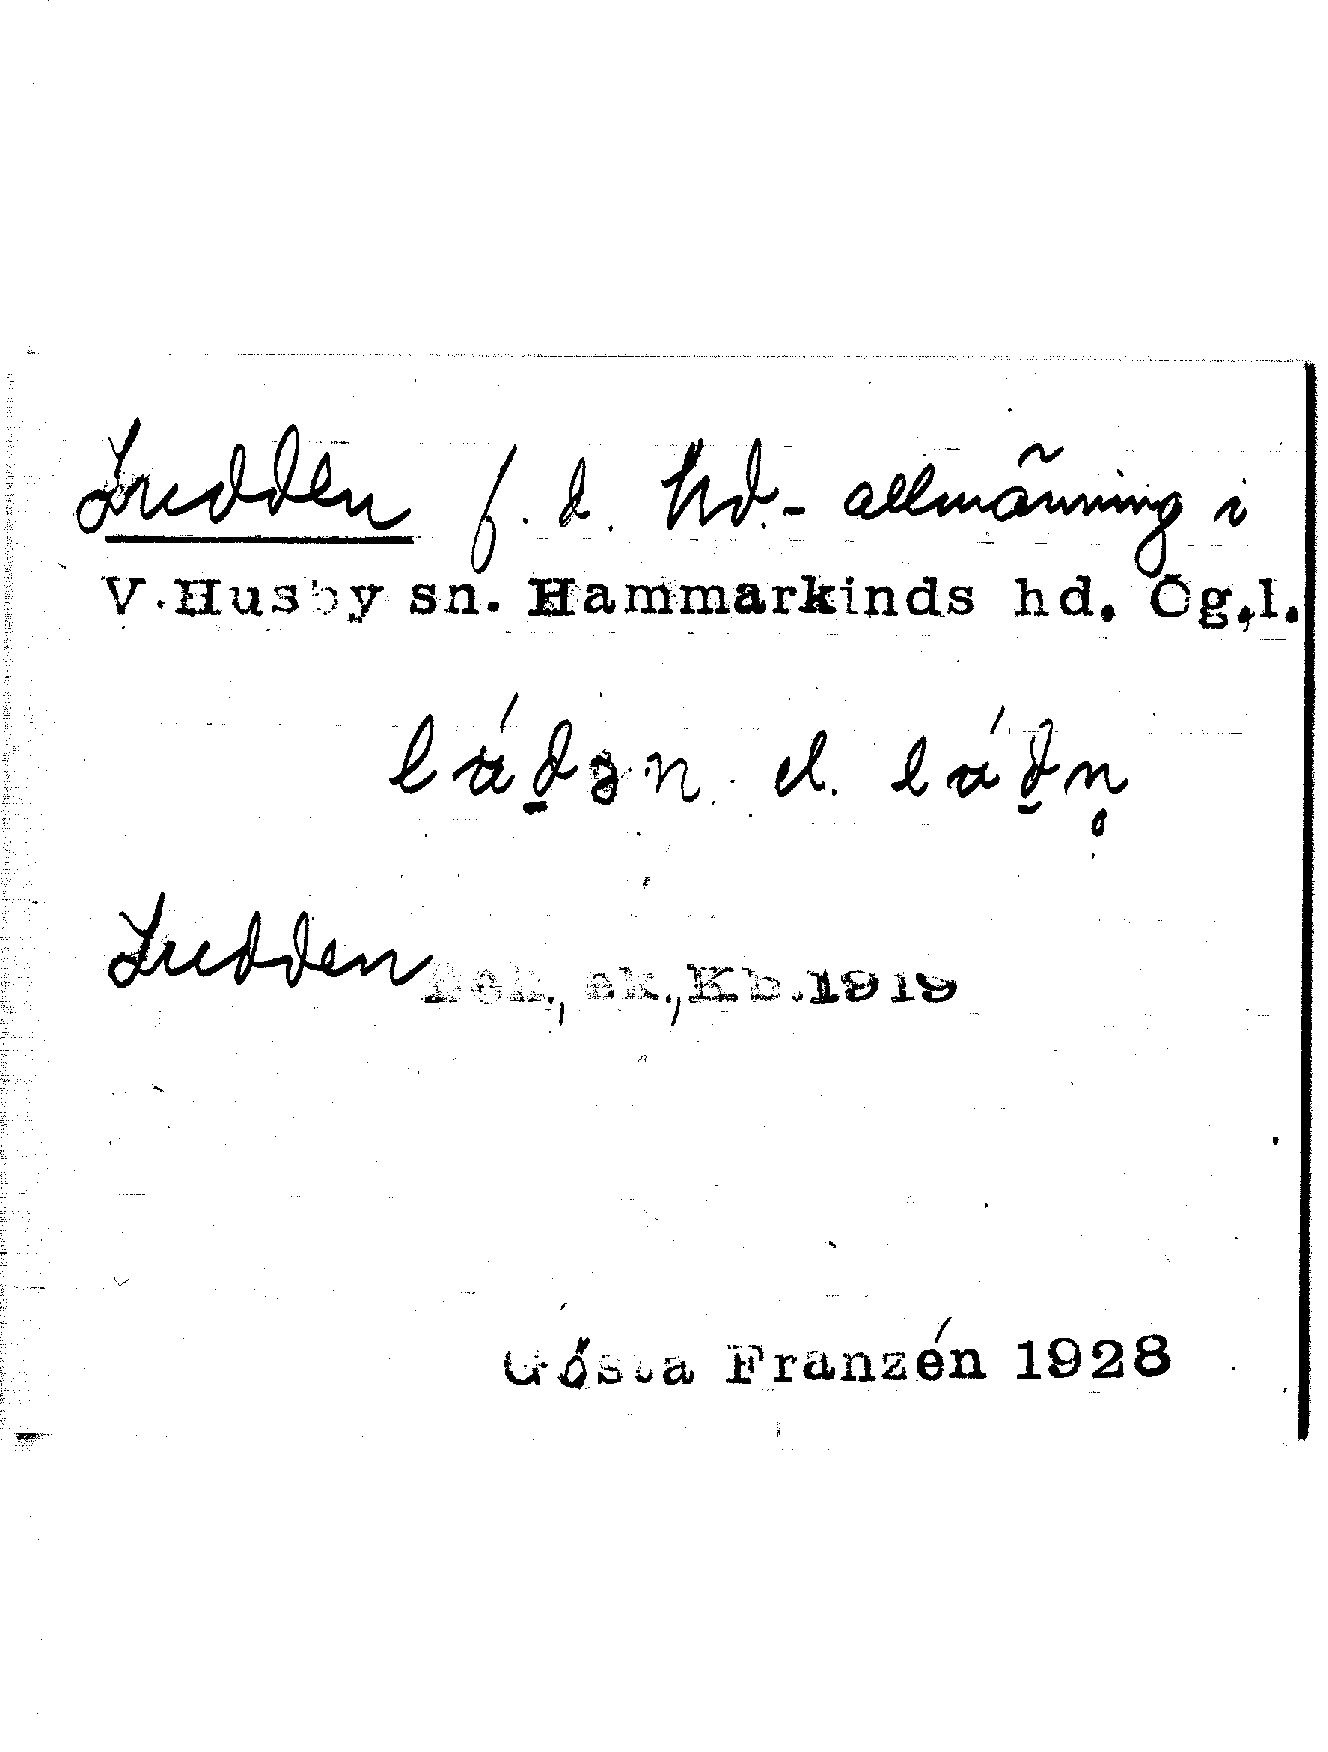 Ludden f. d. hd.- allmänning i
V.Husby sn. Hammarkinds hd. Ög.l.
lúd̠ən el. lúd̠n̥
Ludden ek.,Kb.1919
Gösta Franzén 1928